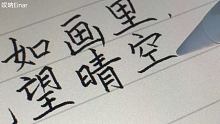 哎呐Einar
如画里
望晴空